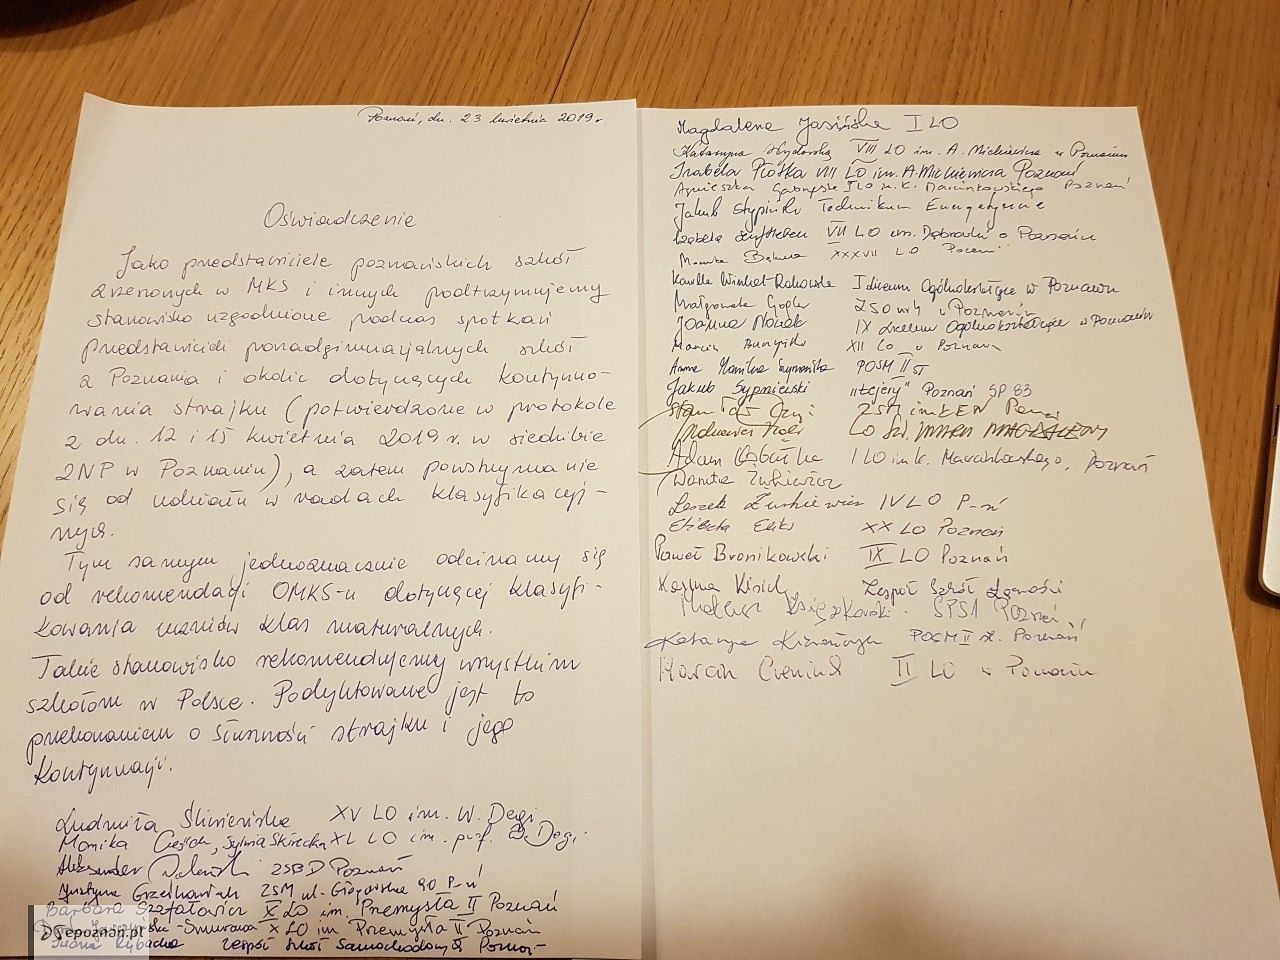 Poznań, dn. 23 kwietnia 2019 r.
Oświadczenie
Jako przedstawiciele poznańskich szkół
zrzeszonych w MKS i innych podtrzymujemy
stanowisko uzgodnione podczas spotkań
przedstawicieli ponadgimnazjalnych szkół
z Poznania i okolic dotyczących kontynuo-
wania strajku (potwierdzone w protokole
z dn. 12 i 15 kwietnia 2019 r. w siedzibie
ZNP w Poznaniu), a zatem powstrzymanie
się od udziału w radach klasyfikacyj-
nych.
Tym samym jednoznacznie odcinamy się
od rekomendacji OMKS-u dotyczącej klasyfi-
kowania uczniów klas maturalnych.
Takie stanowisko rekomendujemy wszystkim
szkołom w Polsce. Podyktowane jest to
przekonaniem o słuszności strajku i jego
kontynuacji.
Ludmiła XV LO im. W. Degi
Monika Sylwia XL LO im. prof. Degi
Aleksander ZSBD Poznań
Justyna ZSM ul. Głogowska 90 P-ń
Barbara Szafałowicz X LO im. Przemysła II Poznań
X LO im Przemysła II Poznań
Iwona Rybacka Zespół Szkół Samochodowych
epoznan.pl
Magdalena Jasińska I LO
Katarzyna VIII LO im. A. Mickiewicza w Poznaniu
Izabela Piotka VIII LO im. A. Mickiewicza Poznań
Agnieszka I LO im. K. Marcinkowskiego Poznań
Jakub Stypiński Technikum Energetyczne
Izabela VII LO im. Dąbrówki w Poznaniu
Monika XXXVII LO Poznań
Kamilla I Liceum Ogólnokształcące w Poznaniu
Małgorzata ZSO nr 4 w Poznaniu
Joanna Nowak IX Liceum Ogólnokształcące w Poznaniu
Marcin XII LO w Poznaniu
Anna POSM II st
Jakub Sypniewski "Łejery" Poznań SP 83
ZSM im KEN
LO Św.
Adam I LO im K. Marcinkowskiego, Poznań
Wanda
Leszek Żurkiewicz IV LO P-ń
Elżbieta XX LO Poznań
Paweł Bronikowski IX LO Poznań
Zespół Szkół Łączności
Mateusz Księżkowski SPS1 Poznań
Katarzyna POSM II st. Poznań
Marcin II LO w Poznaniu